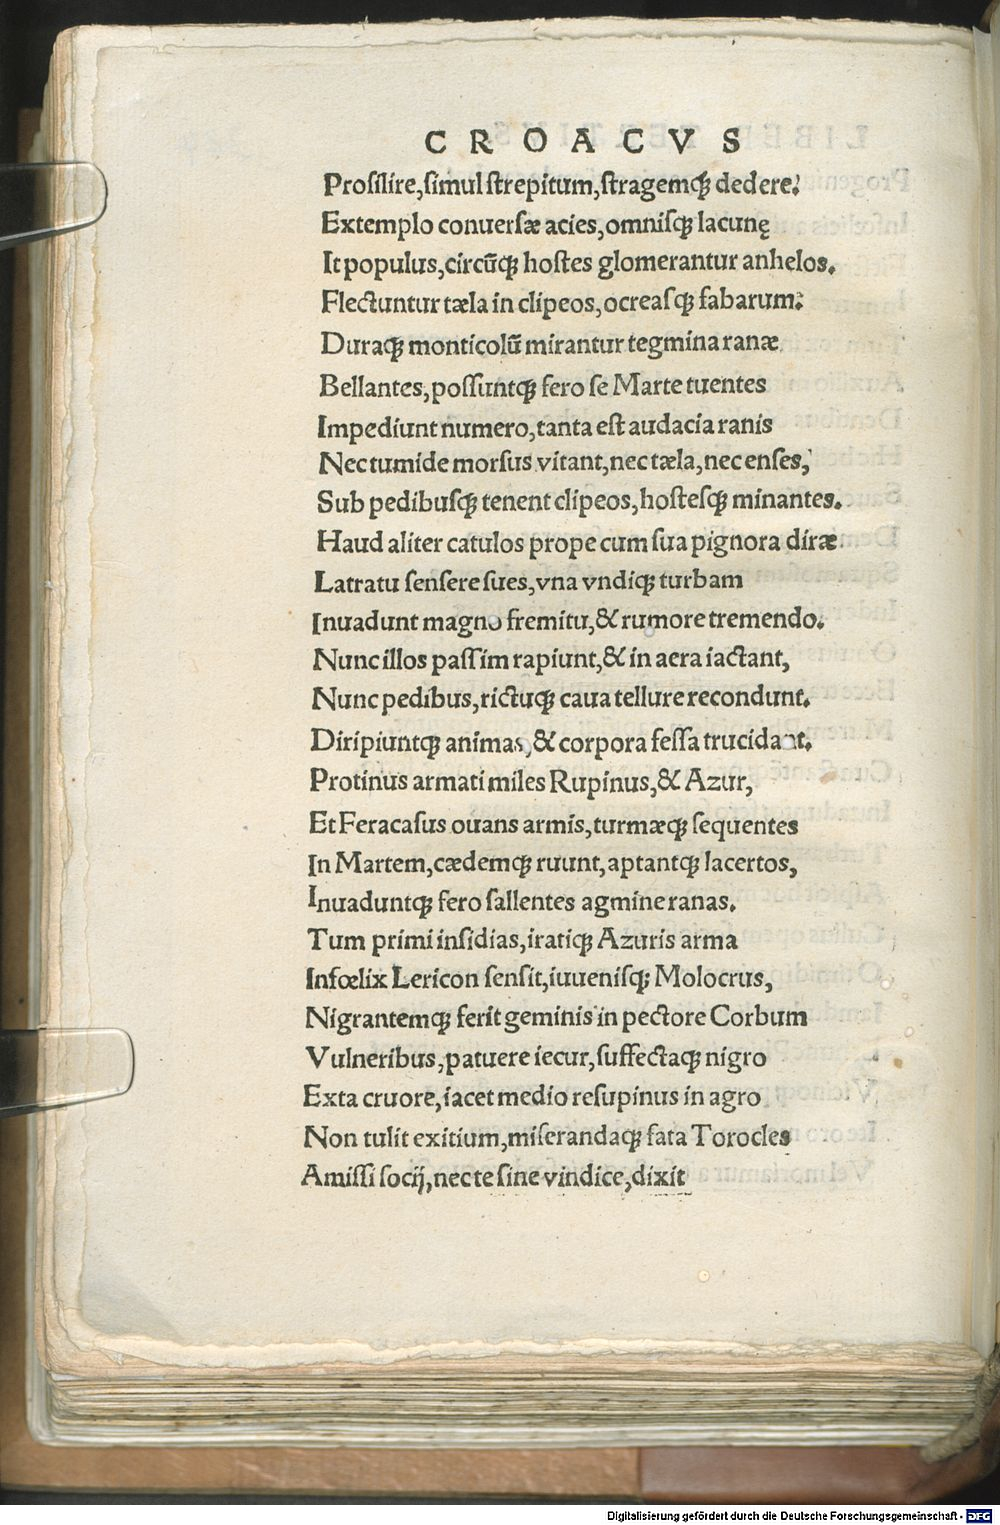 CROACVS
Prosilire, simul strepitum, stragemq; dedere.
Extemplo conuersæ acies, omnisq; lacunę
It populus, circūq; hostes glomerantur anhelos.
Flectuntur tæla in clipeos, ocreasq; fabarum.
Duraq; monticolū mirantur tegmina ranæ
Bellantes, possuntq; fero se Marte tuentes
Impediunt numero, tanta est audacia ranis
Nec tumide morsus vitant, nec tæla, nec enses,
Sub pedibusq; tenent clipeos, hostesq; minantes.
Haud aliter catulos prope cum sua pignora diræ
Latratu sensere sues, vna vndiq; turbam
Inuadunt magno fremitu, & rumore tremendo.
Nunc illos passim rapiunt, & in aera iactant,
Nunc pedibus, rictuq; caua tellure recondunt.
Diripiuntq; animas, & corpora fessa trucidant.
Protinus armati miles Rupinus, & Azur,
Et Feracasus ouans armis, turmæq; sequentes
In Martem, cædemq; ruunt, aptantq; lacertos,
Inuaduntq; fero sallentes agmine ranas.
Tum primi insidias, iratiq; Azuris arma
Infœlix Lericon sensit, iuuenisq; Molocrus,
Nigrantemq; ferit geminis in pectore Corbum
Vulneribus, patuere iecur, suffectaq; nigro
Exta cruore, iacet medio resupinus in agro
Non tulit exitium, miserandaq; fata Torocles
Amissi socij, nec te sine vindice, dixit
Digitalisierung gefördert durch die Deutsche Forschungsgemeinschaft - DFG